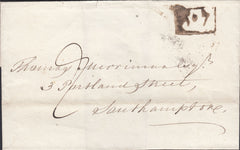 2
Thomas Merriman Esqr
3 Portland Street,
Southampton.